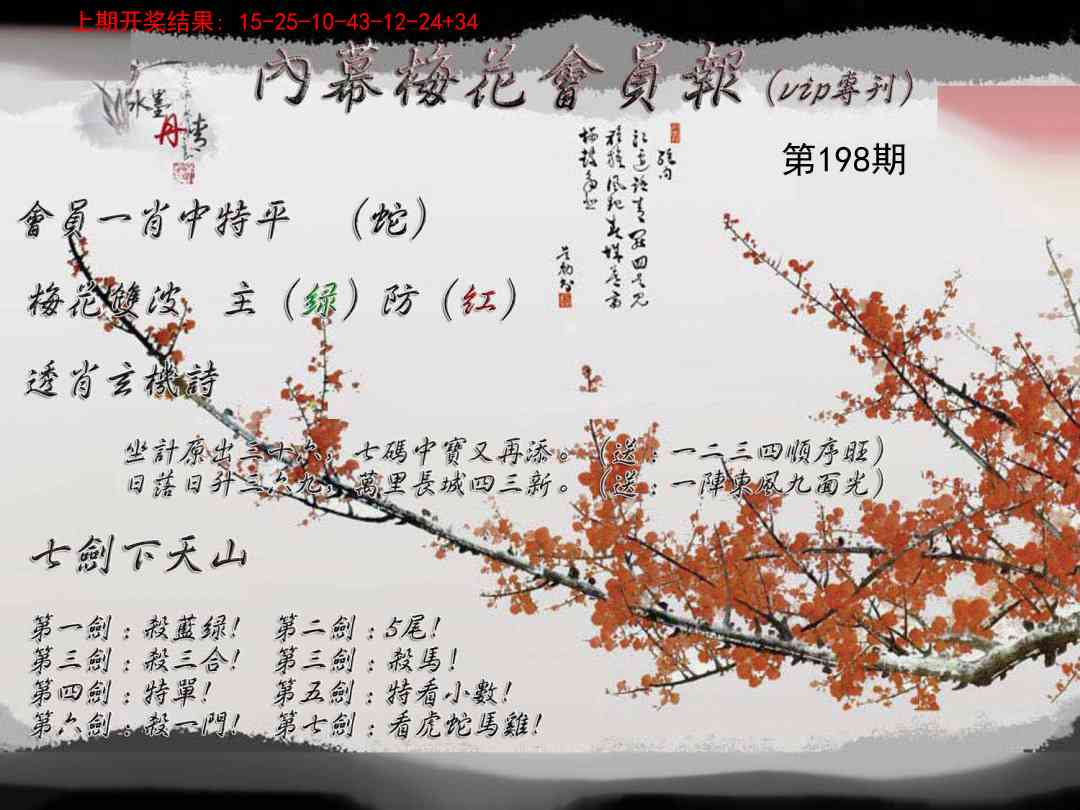 上期开奖结果: 15-25-10-43-12-24+34
內幕梅花會員報(vip專刊)
水墨
丹情
第198期
會員一肖中特平 (蛇)
梅花雙波 主(绿)防(红)
透肖玄機詩
坐計原出三十次，七碼中寶又再添。(送：一二三四順序旺)
日落日升三六九，萬里長城四三新。(送：一陣東風九面光)
七劍下天山
第一劍：殺藍绿! 第二劍：5尾!
第三劍：殺三合! 第三劍：殺馬!
第四劍：特單! 第五劍：特看小數!
第六劍：殺一門! 第七劍：看虎蛇馬雞!